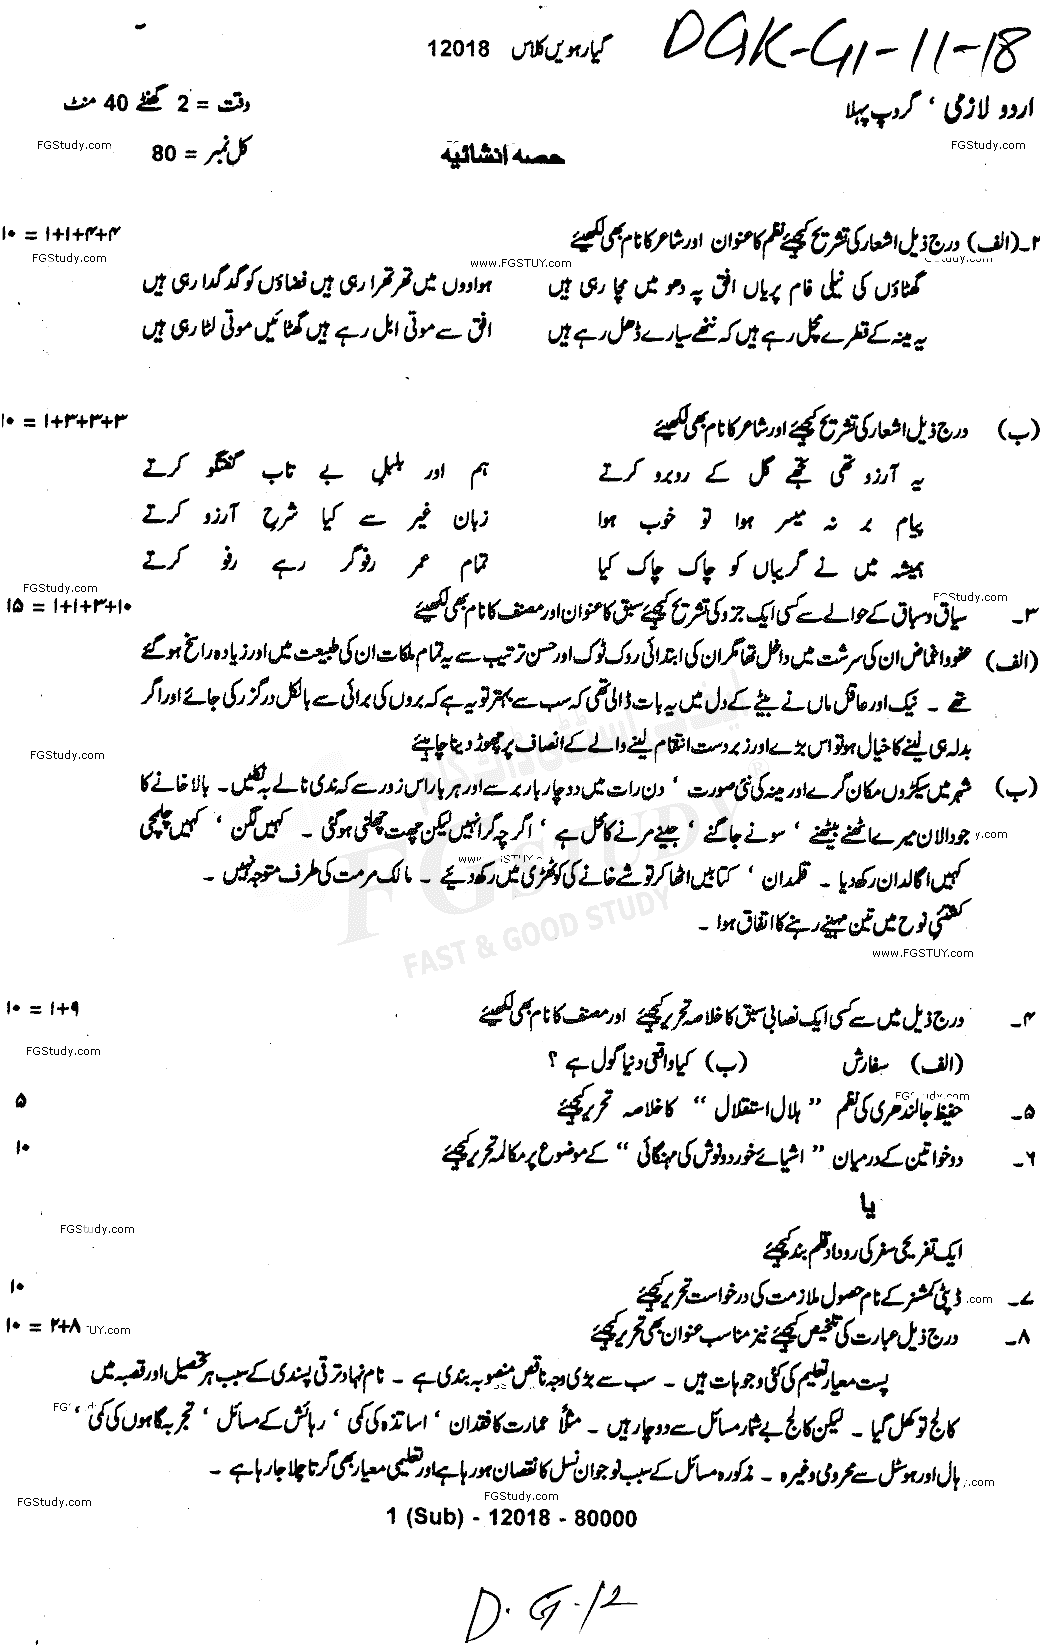 DGK-G1-11-18
گیارھویں کلاس 12018
اردو لازمی ، گروپ پہلا
وقت = 2 گھنٹے 40 منٹ
FGStudy.com
حصہ انشائیہ
کل نمبر = 80
FGStudy.com
۲۔(الف) درج ذیل اشعار کی تشریح کیجئے نظم کا عنوان اور شاعر کا نام بھی لکھیئے ۴+۴+۱+۱ = ۱۰
FGStudy.com www.FGSTUY.com
گھٹاؤں کی نیلی فام پریاں افق پہ دھومیں مچا رہی ہیں ہواووں میں تھرتھرا رہی ہیں فضاؤں کو گدگدا رہی ہیں
یہ مینہ کے قطرے مچل رہے ہیں کہ ننھے سیارے ڈھل رہے ہیں افق سے موتی ابل رہے ہیں گھٹائیں موتی لٹا رہی ہیں
(ب) درج ذیل اشعار کی تشریح کیجئے اور شاعر کا نام بھی لکھیئے ۳+۳+۳+۱ = ۱۰
یہ آرزو تھی تجھے گل کے روبرو کرتے ہم اور بلبل بے تاب گفتگو کرتے
پیام بر نہ میسر ہوا تو خوب ہوا زبان غیر سے کیا شرح آرزو کرتے
ہمیشہ میں نے گریباں کو چاک چاک کیا تمام عمر رفوگر رہے رفو کرتے
FGStudy.com FGStudy.com
۳۔ سیاق و سباق کے حوالے سے کسی ایک جزو کی تشریح کیجئے سبق کا عنوان اور مصنف کا نام بھی لکھیئے ۱۰+۳+۱+۱ = ۱۵
(الف) عفو و اغماض ان کی سرشت میں داخل تھا مگر ان کی ابتدائی روک ٹوک اور حسن ترتیب سے یہ تمام ملکات ان کی طبیعت میں اور زیادہ راسخ ہو گئے
تھے ۔ نیک اور عاقل ماں نے بیٹے کے دل میں یہ بات ڈالی تھی کہ سب سے بہتر تو یہ ہے کہ بروں کی برائی سے بالکل درگزر کی جائے اور اگر
بدلہ ہی لینے کا خیال ہو تو اس بڑے اور زبردست انتقام لینے والے کے انصاف پر چھوڑ دینا چاہیئے
FGStudy.com
(ب) شہر میں سیکڑوں مکان گرے اور مینہ کی نئی صورت ، دن رات میں دو چار بار برسے اور ہر بار اس زور سے کہ ندی نالے بہ نکلیں ۔ بالا خانے کا
جو دالان میرے اٹھنے بیٹھنے ، سونے جاگنے ، جینے مرنے کا محل ہے ، اگرچہ گرا نہیں لیکن چھت چھلنی ہو گئی ۔ کہیں لگن ، کہیں چلمچی
کہیں اگالدان رکھ دیا ۔ قلمدان ، کتابیں اٹھا کر توشے خانے کی کوٹھڑی میں رکھ دیئے ۔ مالک مرمت کی طرف متوجہ نہیں ۔
کشتی نوح میں تین مہینے رہنے کا اتفاق ہوا ۔
FGSTUDY
FAST & GOOD STUDY
www.FGSTUY.com
۴۔ درج ذیل میں سے کسی ایک نصابی سبق کا خلاصہ تحریر کیجئے اور مصنف کا نام بھی لکھیئے ۹+۱ = ۱۰
FGStudy.com
(الف) سفارش (ب) کیا واقعی دنیا گول ہے ؟
۵۔ حفیظ جالندھری کی نظم " ہلال استقلال " کا خلاصہ تحریر کیجئے ۵
۶۔ دو خواتین کے درمیان " اشیائے خوردونوش کی مہنگائی " کے موضوع پر مکالمہ تحریر کیجئے ۱۰
یا
FGStudy.com
ایک تفریحی سفر کی روداد قلم بند کیجئے
۷۔ ڈپٹی کمشنر کے نام حصول ملازمت کی درخواست تحریر کیجئے ۱۰
۸۔ درج ذیل عبارت کی تلخیص کیجئے نیز مناسب عنوان بھی تحریر کیجئے ۸+۲ = ۱۰
پست معیار تعلیم کی کئی وجوہات ہیں ۔ سب سے بڑی وجہ ناقص منصوبہ بندی ہے ۔ نام نہاد ترقی پسندی کے سبب ہر تحصیل اور قصبہ میں
کالج تو کھل گیا ۔ لیکن کالج بے شمار مسائل سے دوچار ہیں ۔ مثلاً عمارت کا فقدان ، اساتذہ کی کمی ، رہائش کے مسائل ، تجربہ گاہوں کی کمی ،
ہال اور ہوسٹل سے محرومی وغیرہ ۔ مذکورہ مسائل کے سبب نوجوان نسل کا نقصان ہو رہا ہے اور تعلیمی معیار بھی گرتا چلا جا رہا ہے ۔
FGStudy.com FGStudy.com
1 (Sub) - 12018 - 80000
D.G.12